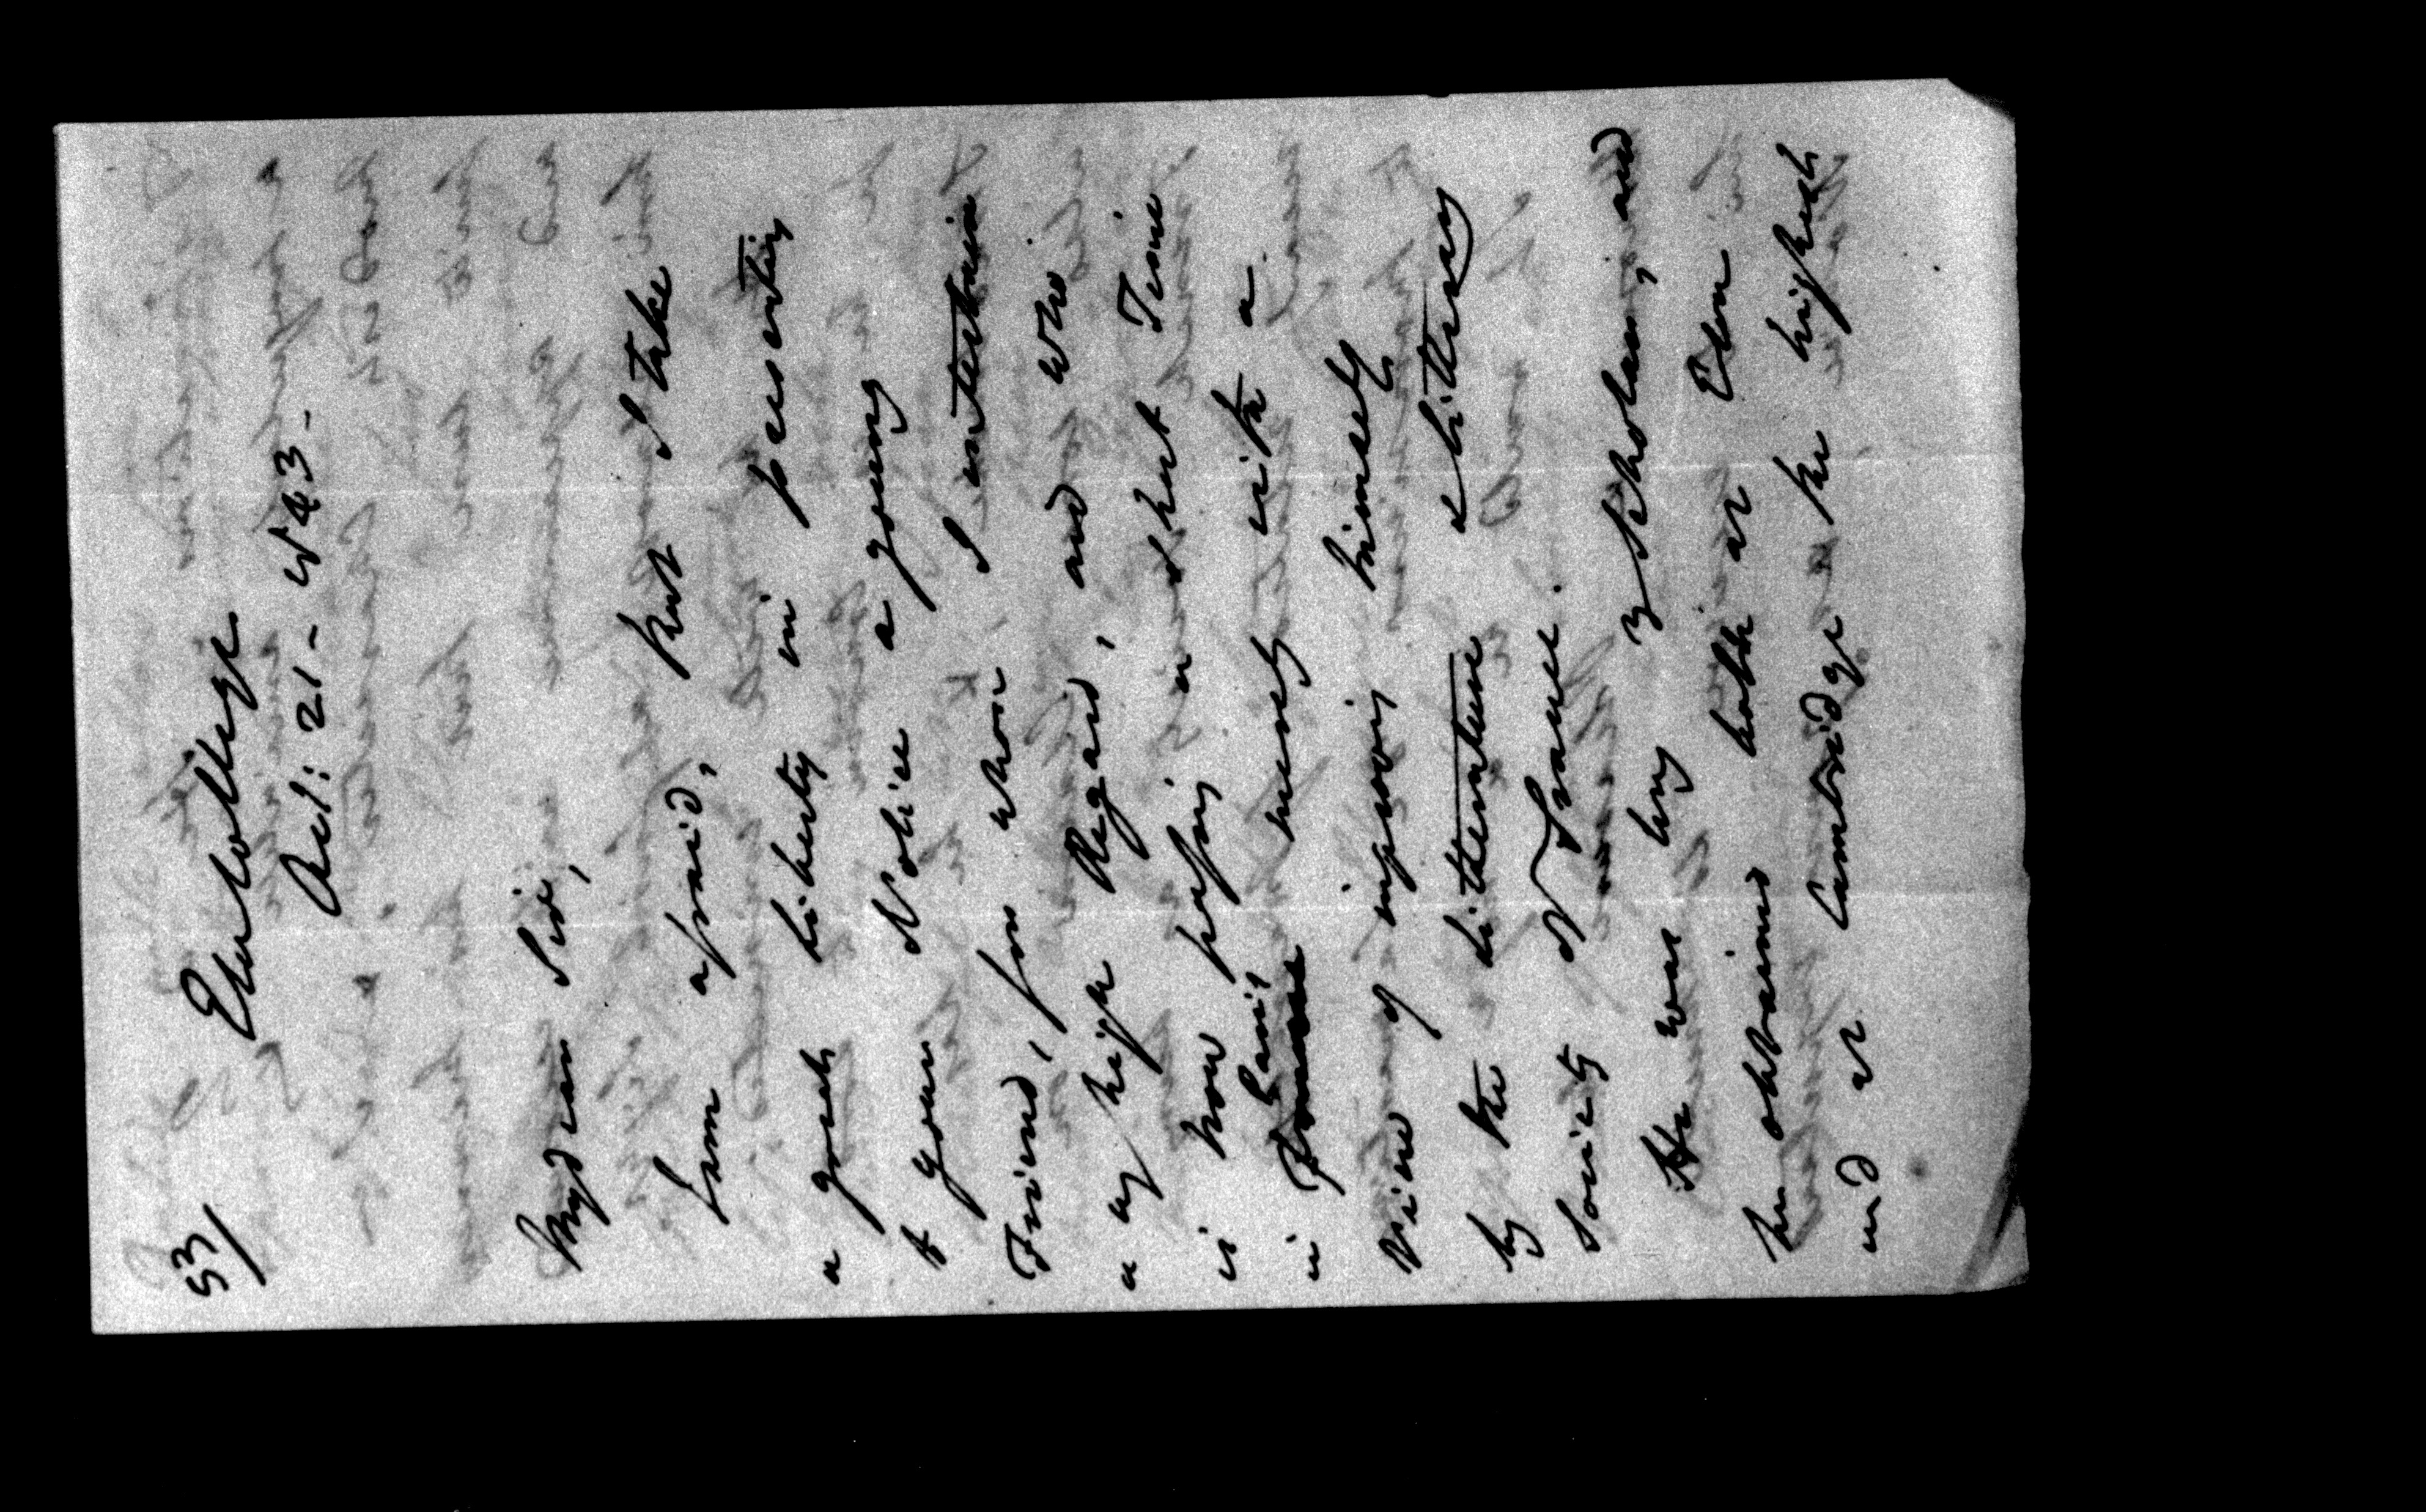 53/
Eton College
Oct: 21 - 1843 -
My dear Sir,
I am afraid, that I take
a great liberty in presenting
to your Notice a young
Friend, for whom I entertain
a very high Regard, and who
is now passing a short Time
in France Paris merely with a
view of improving himself
by the Literature & Literary
Society of France.
He was my Scholar, and
has obtained both at Eton
and at Cambridge the highest